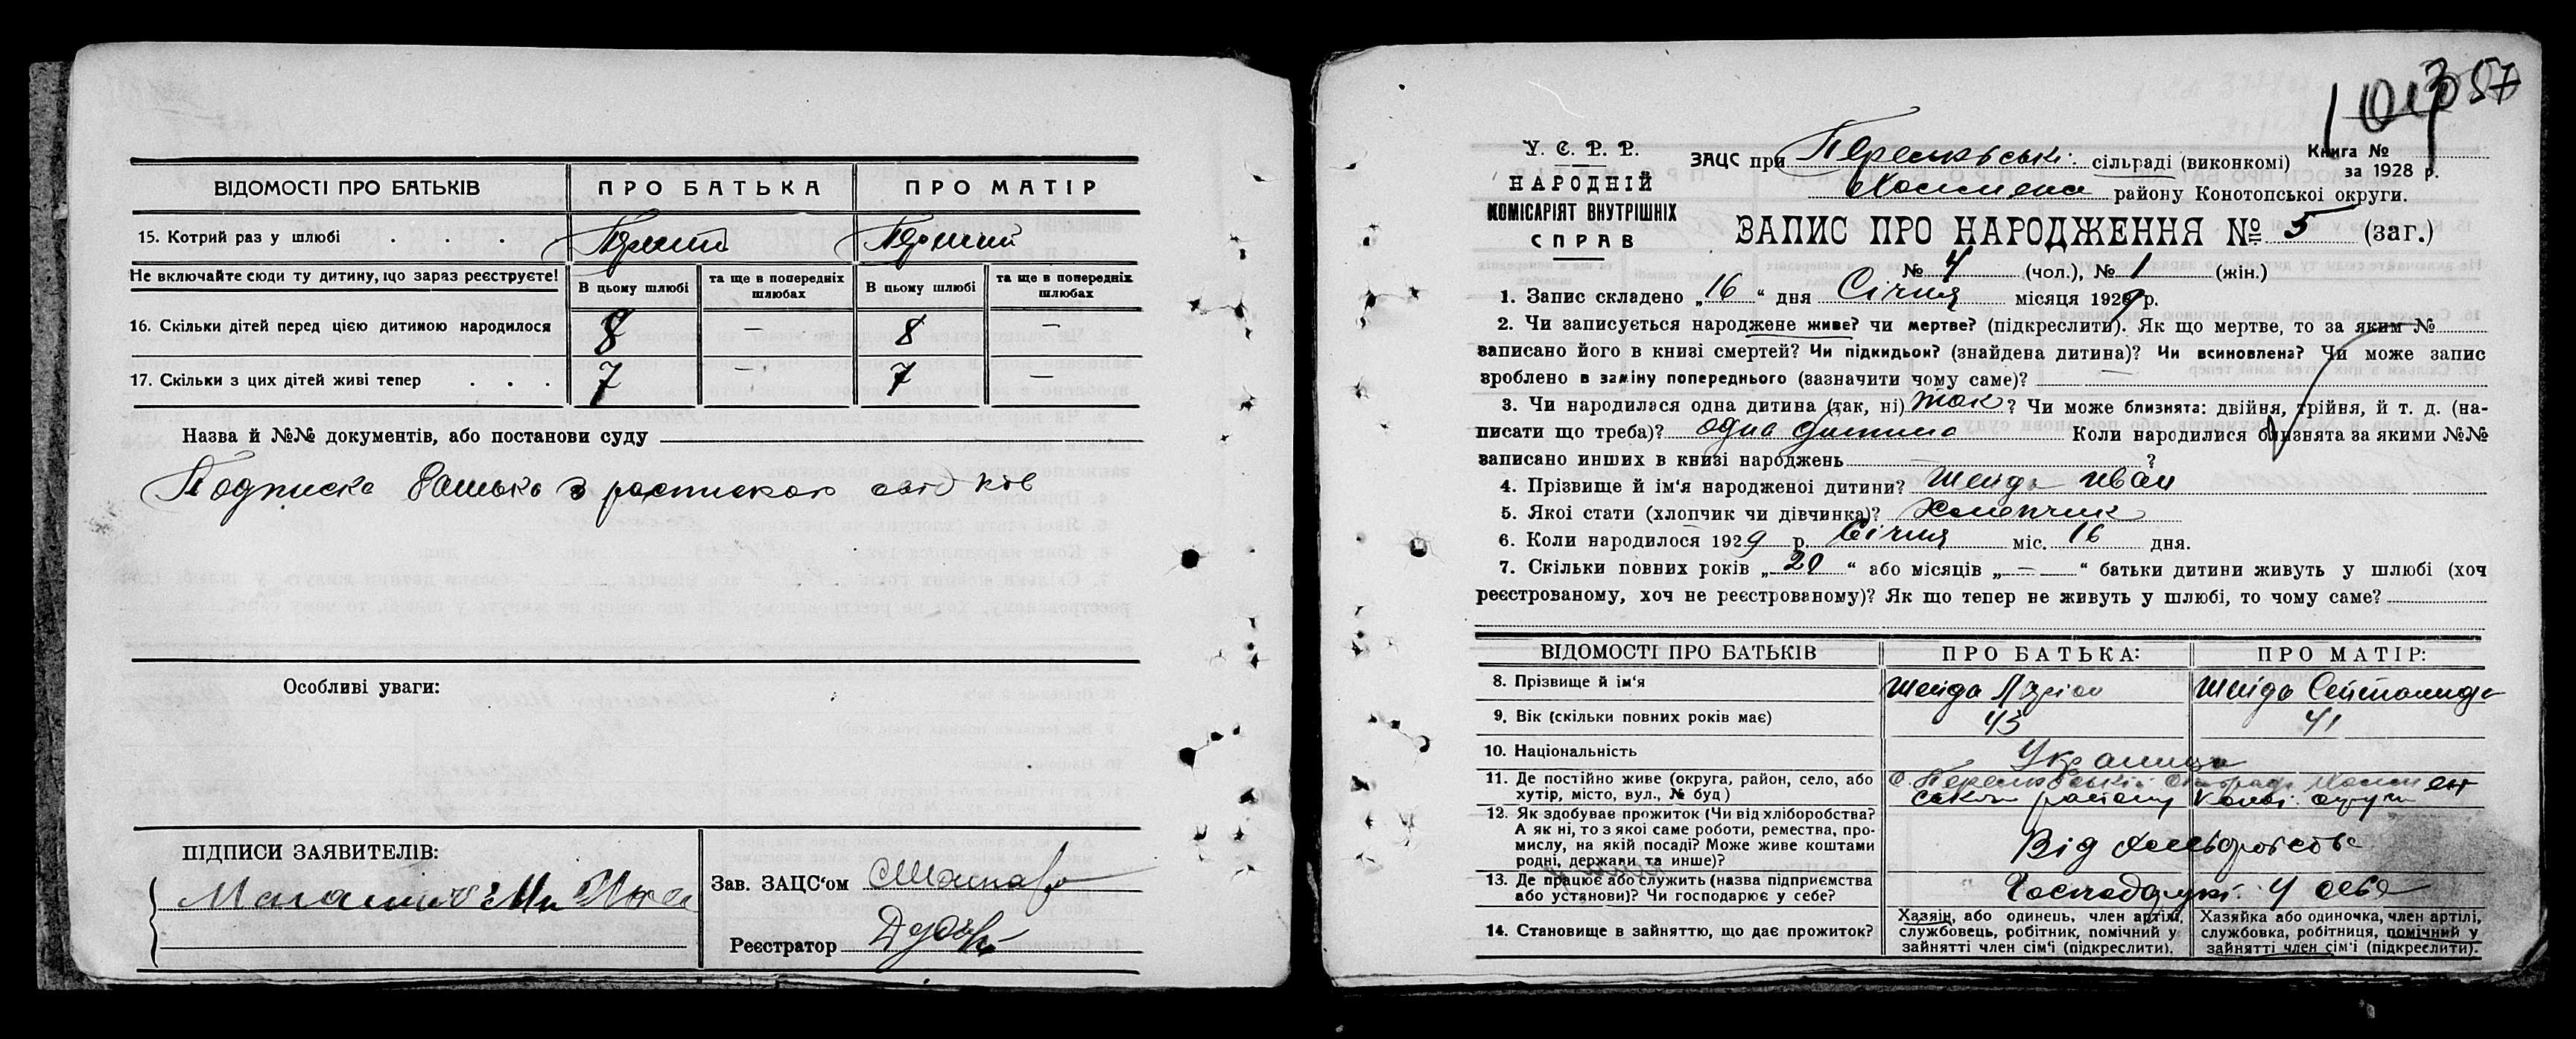 ВІДОМОСТІ ПРО БАТЬКІВ ПРО БАТЬКА ПРО МАТІР
15. Котрий раз у шлюбі . . .
Не включайте сюди ту дитину, що зараз реєструєте! В цьому шлюбі та ще в попередніх шлюбах В цьому шлюбі та ще в попередніх шлюбах
16. Скільки дітей перед цією дитиною народилося 8 — 8 —
17. Скільки з цих дітей живі тепер . . . 7 — 7 —
Назва й №№ документів, або постанови суду
Подписка батька з
Особливі уваги:
ПІДПИСИ ЗАЯВИТЕЛІВ:
Зав. ЗАЦС'ом
Реєстратор
57
У. С. Р. Р.
НАРОДНІЙ
КОМІСАРІЯТ ВНУТРІШНІХ
СПРАВ
ЗАЦС при сільраді (виконкомі) Книга №
за 1928 р.
району Конотопської округи.
ЗАПИС ПРО НАРОДЖЕННЯ № 5 (заг.)
№ 4 (чол.), № 1 (жін.)
1. Запис складено „16“ дня Січня місяця 1929 р.
2. Чи записується народжене живе? чи мертве? (підкреслити). Як що мертве, то за яким №
записано його в книзі смертей? Чи підкидьок? (знайдена дитина)? Чи всиновлена? Чи може запис
зроблено в заміну попереднього (зазначити чому саме)? —
3. Чи народилася одна дитина (так, ні) так? Чи може близнята: двійня, трійня, й т. д. (на-
писати що треба)? одна дитина Коли народилися близнята за якими №№
записано инших в книзі народжень ?
4. Прізвище й ім'я народженої дитини? Шейда Иван
5. Якої стати (хлопчик чи дівчинка)? Хлопчик
6. Коли народилося 1929 р. Січня міс. 16 дня.
7. Скільки повних років „20“ або місяців „—“ батьки дитини живуть у шлюбі (хоч
реєстрованому, хоч не реєстрованому)? Як що тепер не живуть у шлюбі, то чому саме?
ВІДОМОСТІ ПРО БАТЬКІВ ПРО БАТЬКА: ПРО МАТІР:
8. Прізвище й ім'я Шейда Шейда
9. Вік (скільки повних років має) 43 41
10. Національність Украинци
11. Де постійно живе (округа, район, село, або
хутір, місто, вул., № буд)
12. Як здобуває прожиток (Чи від хліборобства?
А як ні, то з якої саме роботи, ремества, про-
мислу, на якій посаді? Може живе коштами
родні, держави та инше)? Від хліборобства
13. Де працює або служить (назва підприємства
або установи)? Чи господарює у себе? у себе
14. Становище в зайняттю, що дає прожиток?
Хазяїн, або одинець, член артілі,
службовець, робітник, помічний у
зайнятті член сім'ї (підкреслити).
Хазяйка або одиночка, член артілі,
службовка, робітниця, помічний у
зайнятті член сім'ї (підкреслити).